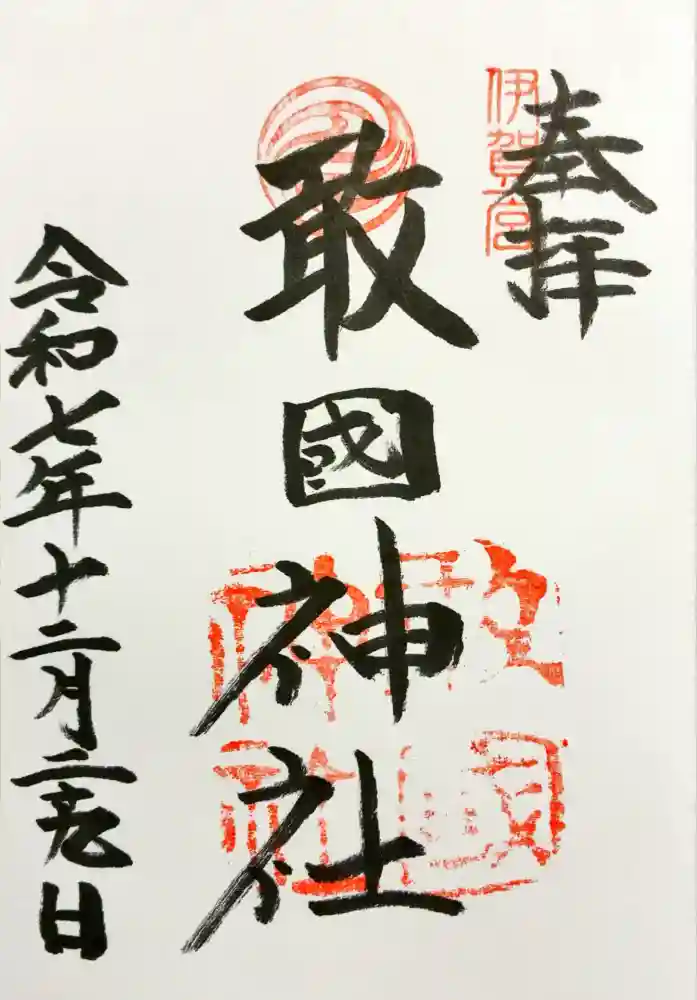 奉拝
伊賀一宮
敢國神社
令和七年十二月二十九日